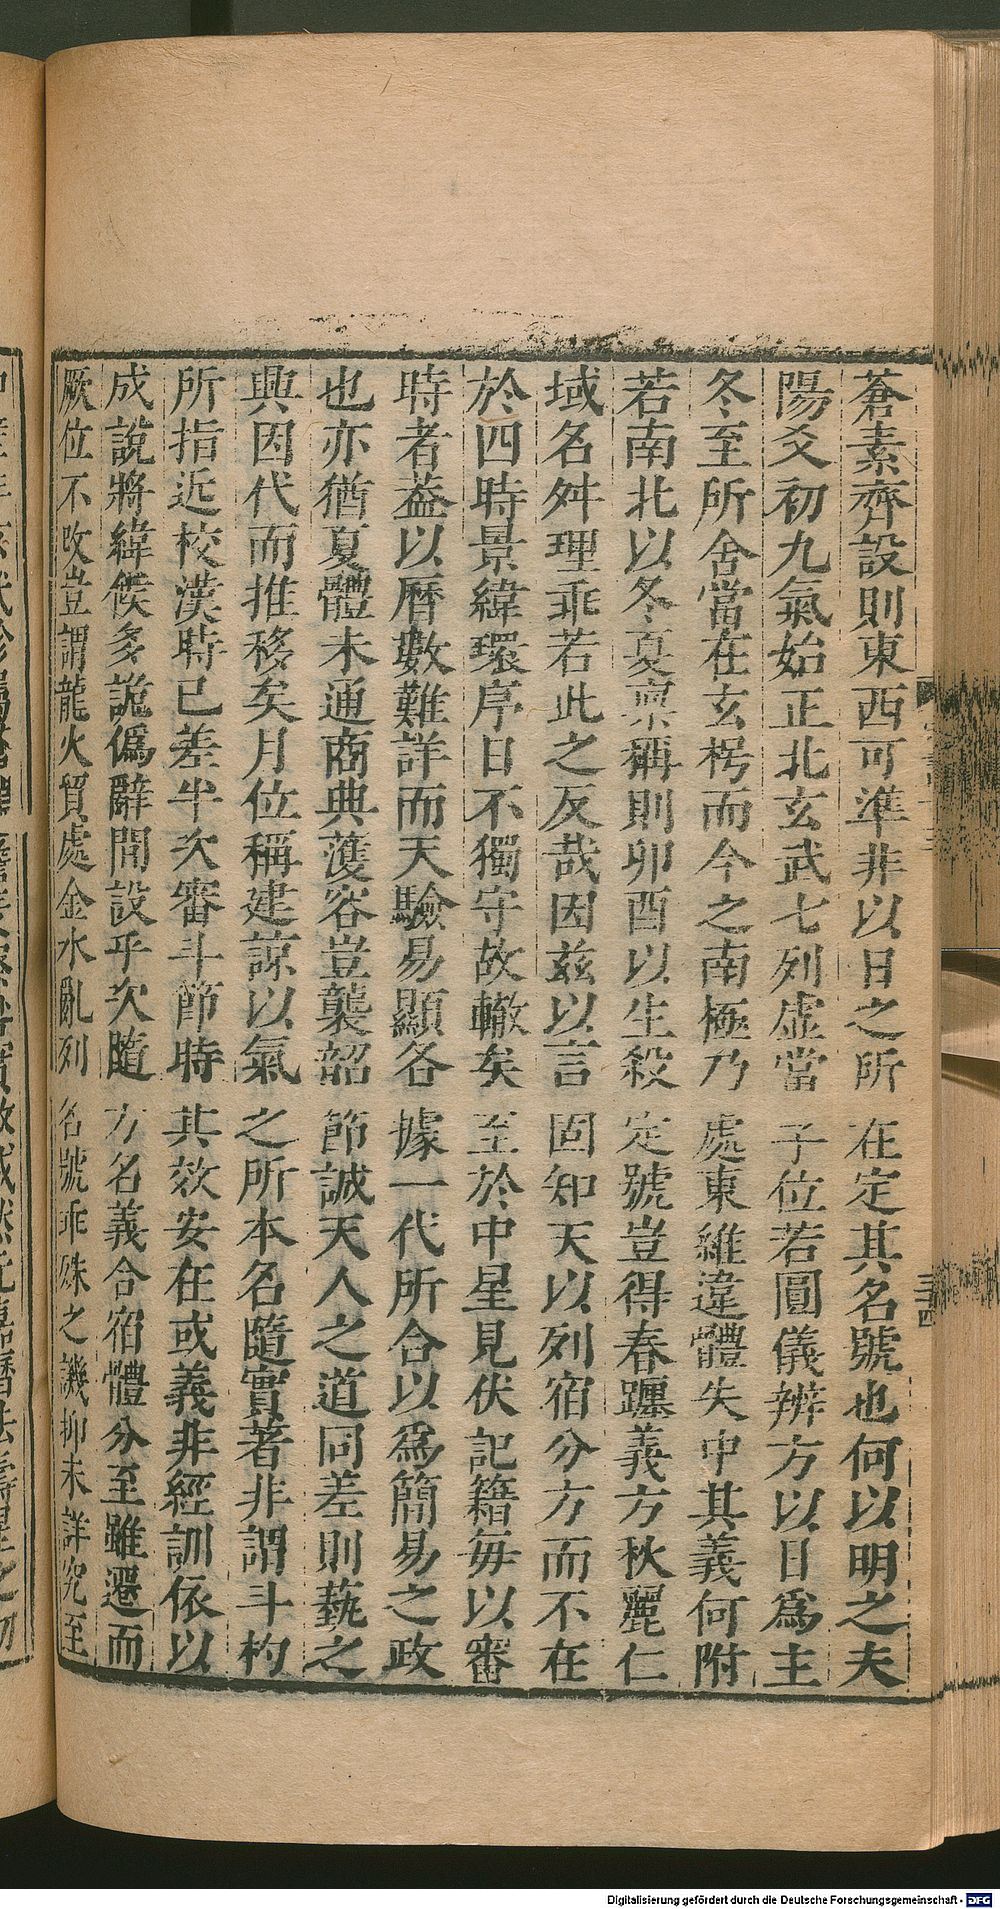 蒼素齊設則東西可準非以日之所在定其名號也何以明之夫
陽爻初九氣始正北玄武七列虛當子位若圓儀辨方以日爲主
冬至所舍當在玄枵而今之南極乃處東維違體失中其義何附
若南北以冬夏稟稱則卯酉以生殺定號豈得春躔義方秋麗仁
域名舛理乖若此之反哉因茲以言固知天以列宿分方而不在
於四時景緯環序日不獨守故轍矣至於中星見伏記籍每以審
時者葢以曆數難詳而天驗易顯各據一代所合以爲簡易之政
也亦猶夏體未通商典濩容豈襲韶節誠天人之道同差則藝之
興因代而推移矣月位稱建諒以氣之所本名隨實著非謂斗杓
所指近校漢時已差半次審斗節時其效安在或義非經訓依以
成說將緯候多詭僞辭間設乎次隨方名義合宿體分至雖遷而
厥位不改豈謂龍火貿處金水亂列名號乖殊之譏抑未詳究至
三十四
Digitalisierung gefördert durch die Deutsche Forschungsgemeinschaft - DFG